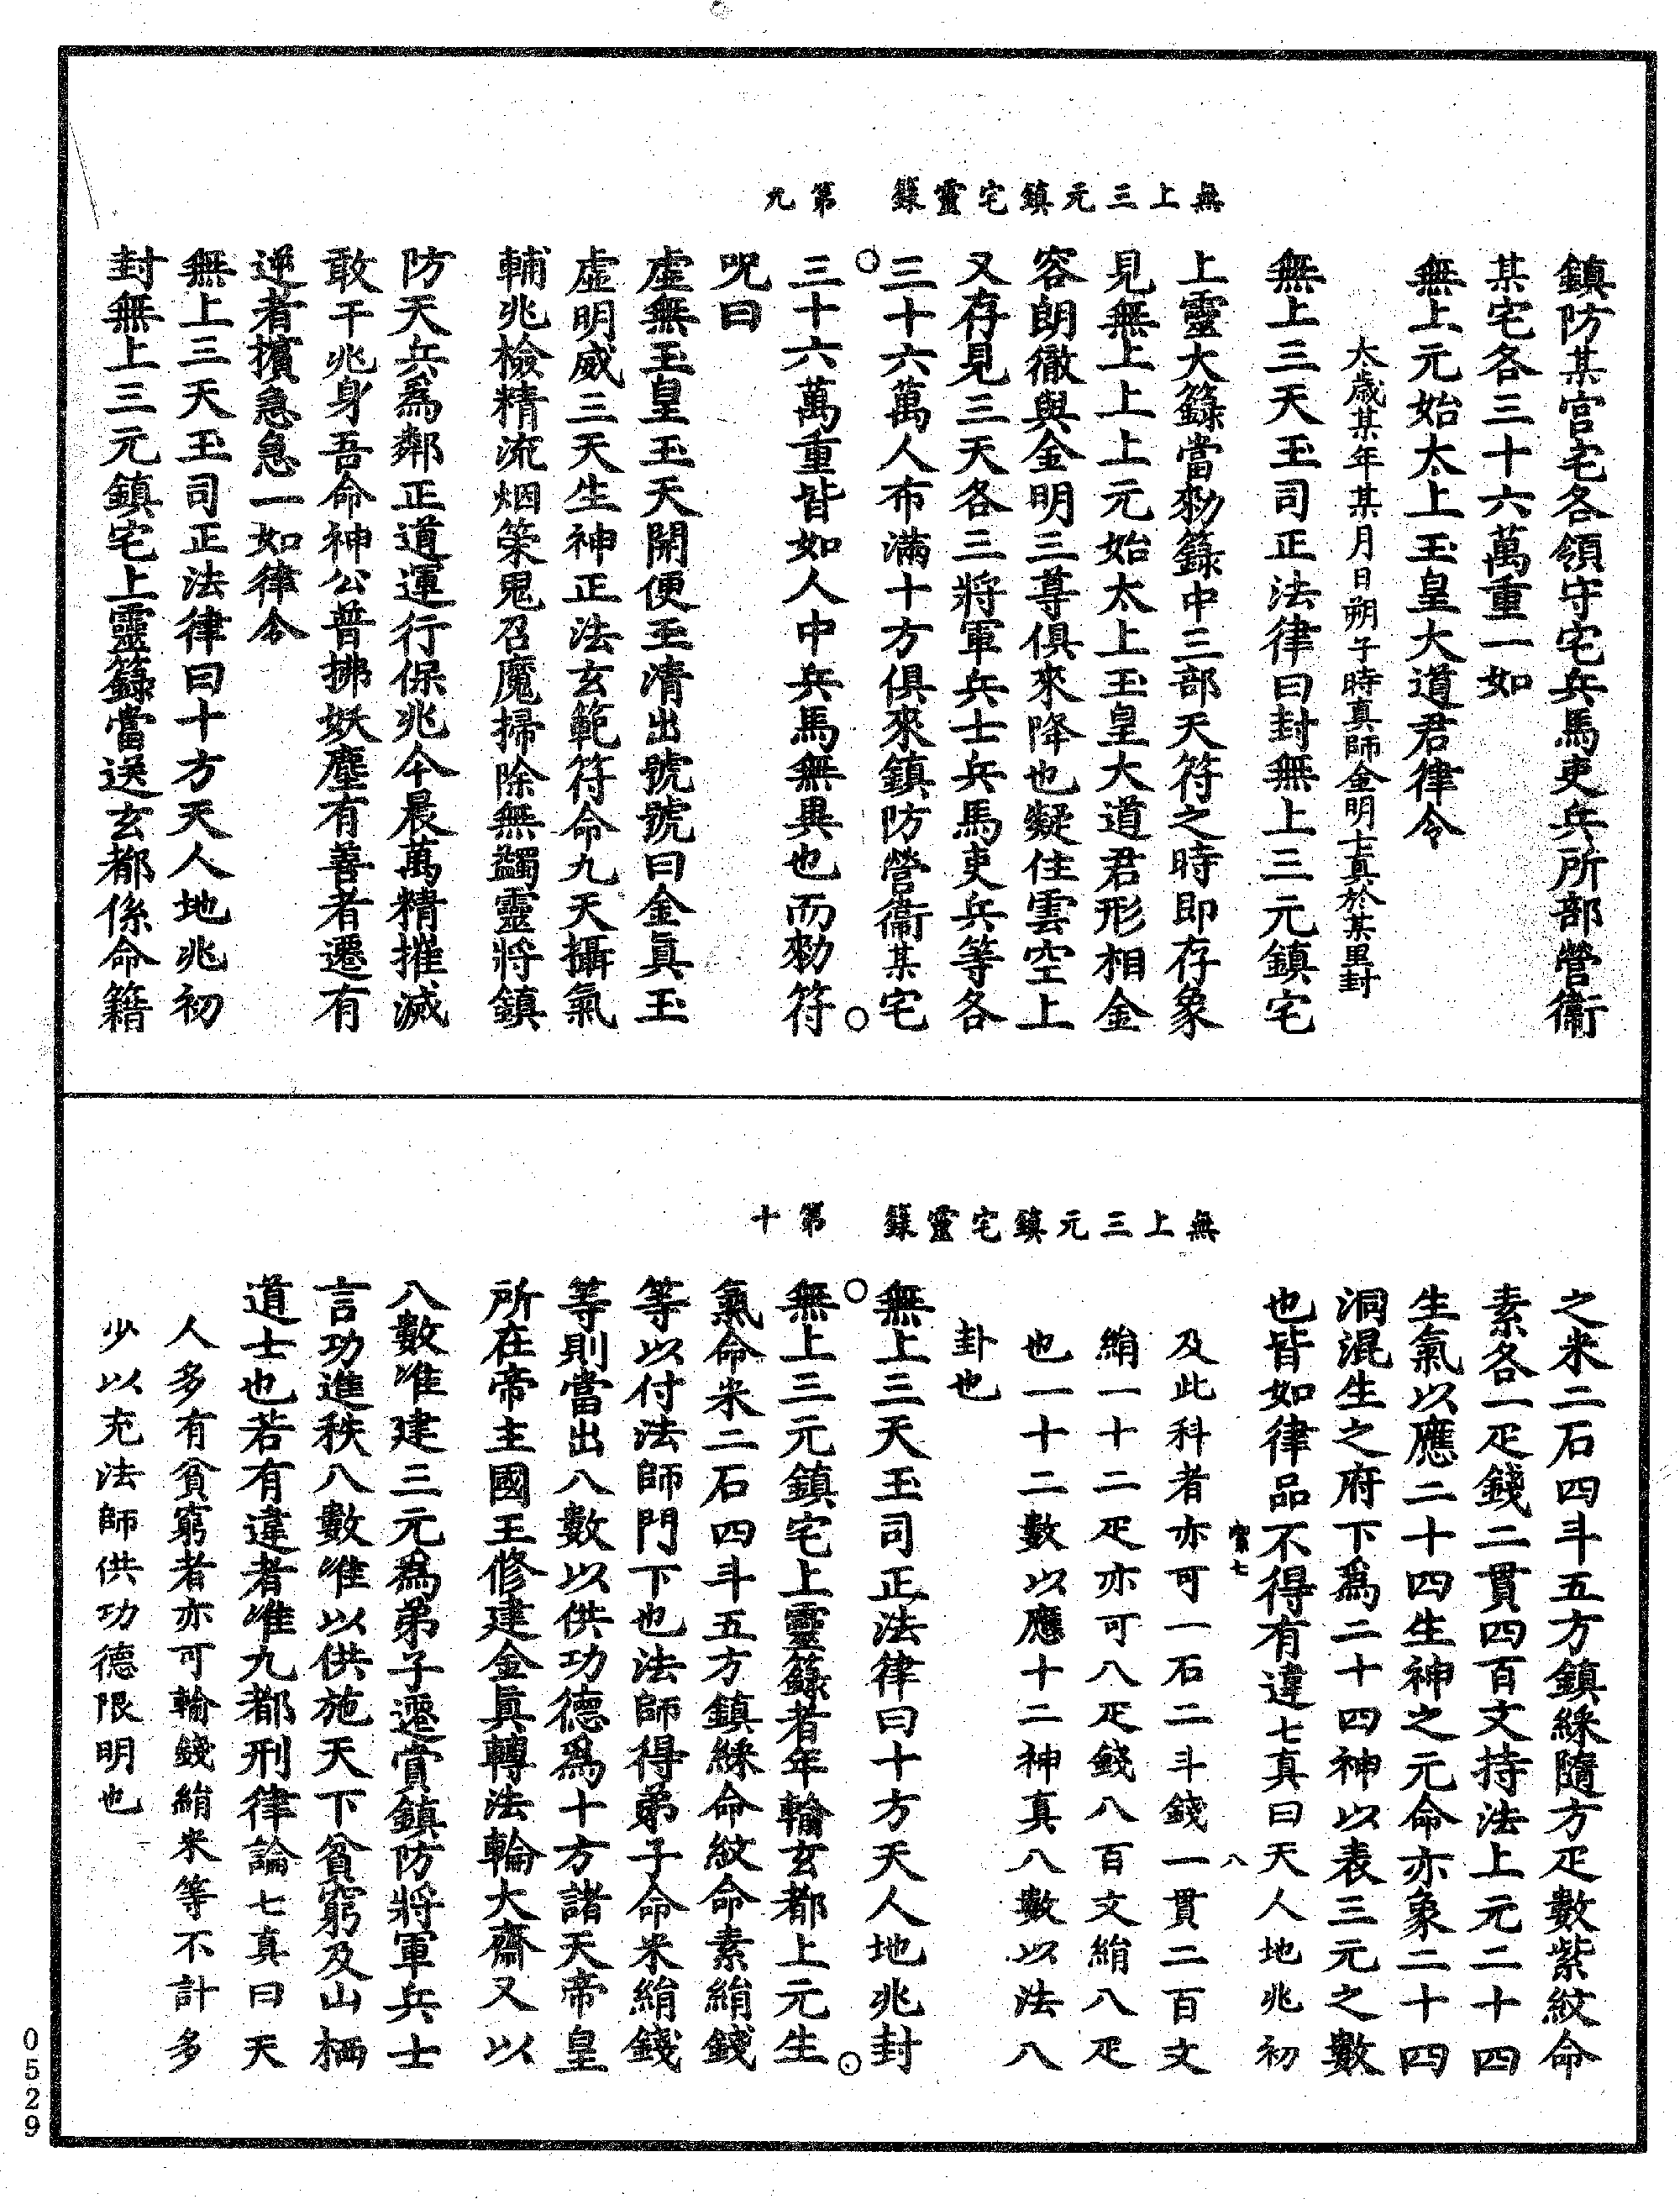 無上三元鎮宅靈籙　第九
鎮防某官宅各領守宅兵馬吏兵所部營衞
某宅各三十六萬重一如
無上元始太上玉皇大道君律令
太歲某年某月日朔子時真師金明七真於某里封
無上三天玉司正法律曰封無上三元鎮宅
上靈大籙當勑籙中三部天符之時即存象
見無上上上元始太上玉皇大道君形相金
容朗徹與金明三尊俱來降也凝住雲空上
又存見三天各三將軍兵士兵馬吏兵等各
三十六萬人布滿十方俱來鎮防營衞某宅
三十六萬重皆如人中兵馬無異也而勑符
呪曰
虛無玉皇玉天開便玉清出號號曰金真玉
虛明威三天生神正法玄範符命九天攝氣
輔兆檢精流烟策鬼召魔掃除無蠲靈將鎮
防天兵爲鄰正道運行保兆今晨萬精摧滅
敢干兆身吾命神公普拂妖塵有善者遷有
逆者擯急急一如律令
無上三天玉司正法律曰十方天人地兆初
封無上三元鎮宅上靈籙當送玄都係命籍
無上三元鎮宅靈籙　第十
之米二石四斗五方鎮綵隨方疋數紫紋命
素各一疋錢二貫四百文持法上元二十四
生氣以應二十四生神之元命亦象二十四
洞混生之府下爲二十四神以表三元之數
也皆如律品不得有違七真曰天人地兆初
七　八
及此科者亦可一石二斗錢一貫二百文
絹一十二疋亦可八疋錢八百文絹八疋
也一十二數以應十二神真八數以法八
卦也
無上三天玉司正法律曰十方天人地兆封
無上三元鎮宅上靈籙者年輸玄都上元生
氣命米二石四斗五方鎮綵命紋命素絹錢
等以付法師門下也法師得弟子命米絹錢
等則當出八數以供功德爲十方諸天帝皇
所在帝主國王修建金真轉法輪大齋又以
八數唯建三元爲弟子遷賞鎮防將軍兵士
言功進秩八數唯以供施天下貧窮及山栖
道士也若有違者唯九都刑律論七真曰天
人多有貧窮者亦可輸錢絹米等不計多
少以充法師供功德限明也
0529